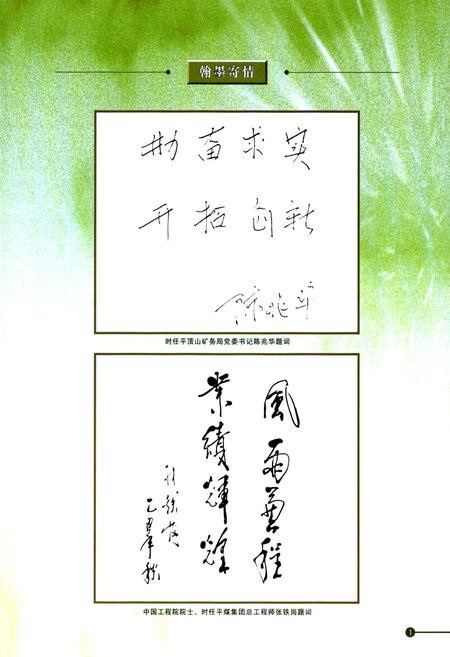 翰墨寄情
勤奋求实
开拓创新
陈兆华
时任平顶山矿务局党委书记陈兆华题词
風雨兼程
業績輝煌
张铁岗
年秋
中国工程院院士、时任平煤集团总工程师张铁岗题词
1